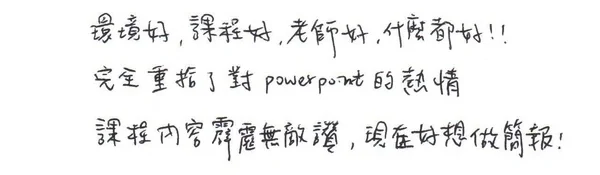 環境好,課程好,老師好,什麼都好!!
完全重拾了對powerpoint的熱情
課程內容霹靂無敵讚,現在好想做簡報!